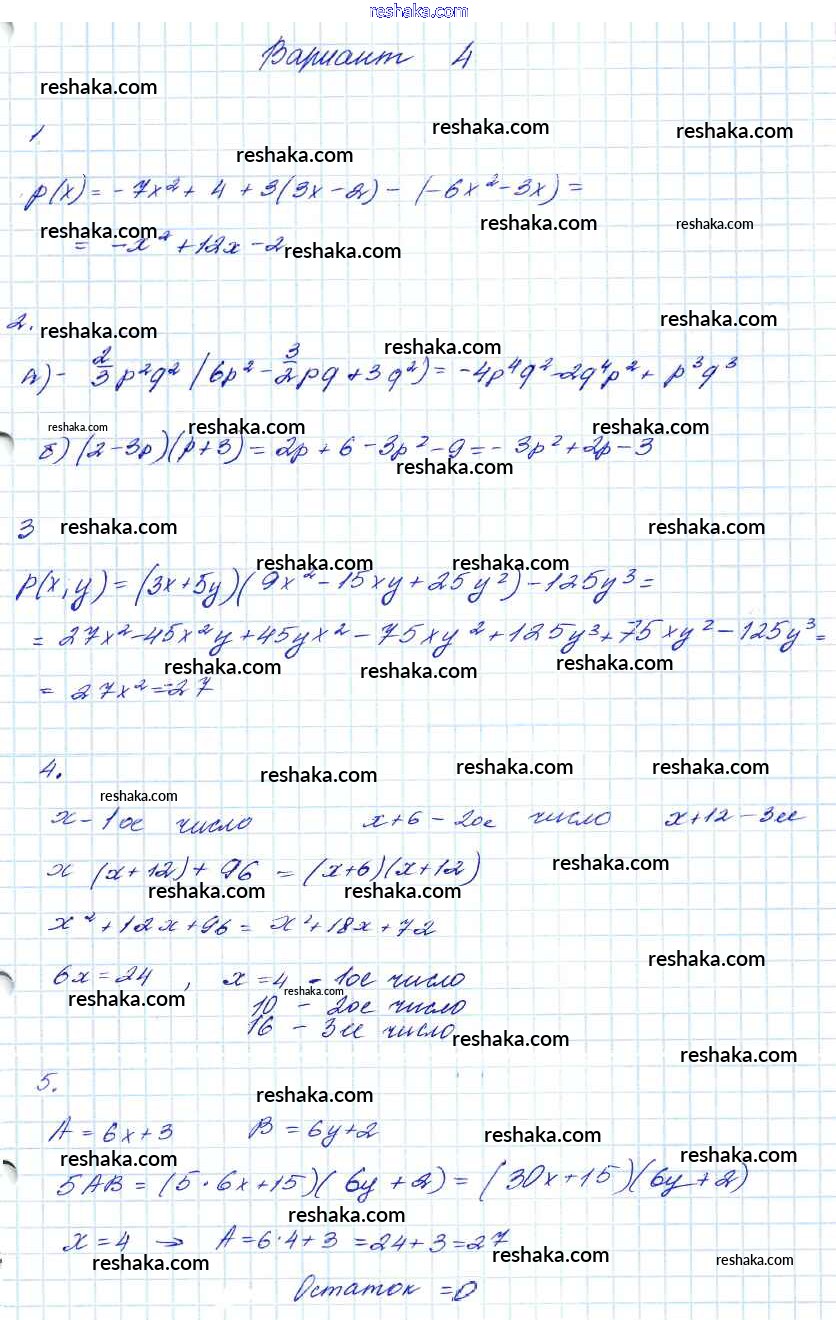 reshaka.com
Вариант 4
reshaka.com
reshaka.com reshaka.com
1
reshaka.com
p(x) = -7x² + 4 + 3(3x-2) - (-6x²-3x) =
reshaka.com reshaka.com reshaka.com
= -x² + 12x - 2
reshaka.com
reshaka.com
2.
reshaka.com
reshaka.com
а) - 2/3 p²q² (6p² - 3/2 pq + 3q²) = -4p⁴q² - 2q⁴p² + p³q³
reshaka.com reshaka.com reshaka.com
б) (2-3p)(p+3) = 2p + 6 - 3p² - 9 = -3p² + 2p - 3
reshaka.com
3
reshaka.com reshaka.com
reshaka.com reshaka.com
p(x,y) = (3x+5y)(9x² - 15xy + 25y²) - 125y³ =
= 27x² - 45x²y + 45yx² - 75xy² + 125y³ + 75xy² - 125y³ =
reshaka.com reshaka.com reshaka.com
= 27x² = 27
4.
reshaka.com reshaka.com reshaka.com
reshaka.com
x - 1ое число x+6 - 2ое число x+12 - 3ее
x (x+12) + 96 = (x+6)(x+12)
reshaka.com
reshaka.com reshaka.com
x² + 12x + 96 = x² + 18x + 72
reshaka.com
6x = 24 , x = 4 - 1ое число
reshaka.com reshaka.com
10 - 2ое число
16 - 3ее число
reshaka.com
reshaka.com
5.
reshaka.com
A = 6x + 3 B = 6y + 2
reshaka.com
reshaka.com reshaka.com
5AB = (5·6x+15)(6y+2) = (30x+15)(6y+2)
reshaka.com
x = 4 → A = 6·4 + 3 = 24 + 3 = 27
reshaka.com reshaka.com reshaka.com
Остаток = 0